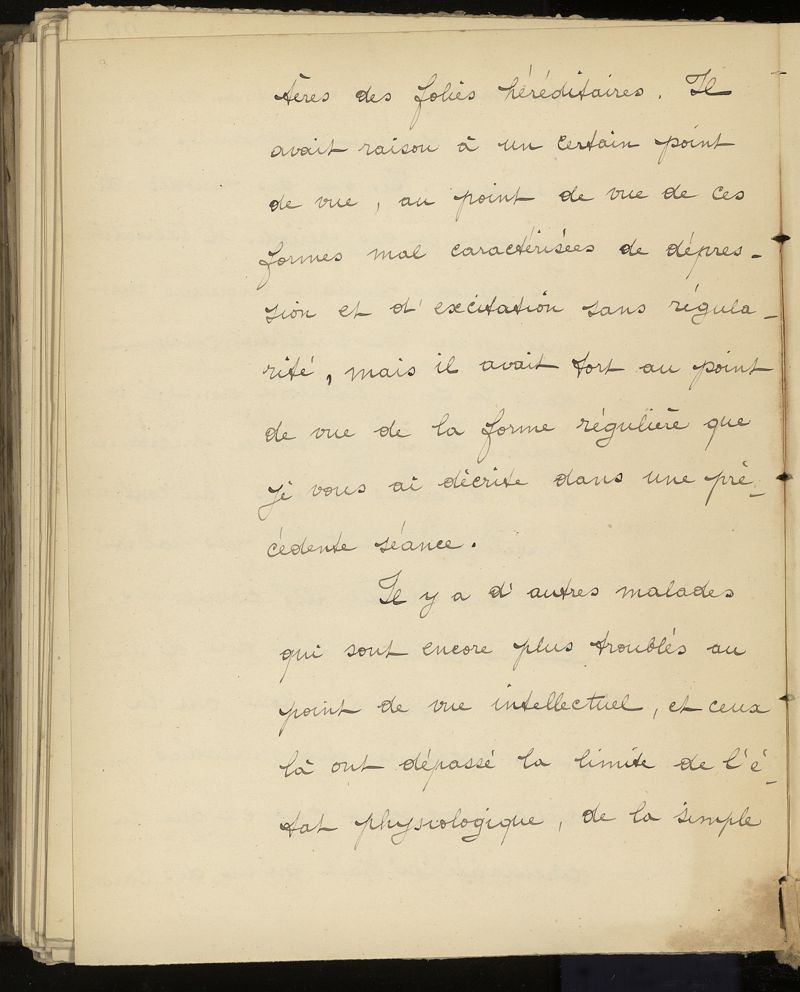 tères des folies héréditaires. Il
avait raison à un certain point
de vue, au point de vue de ces
formes mal caractérisées de dépres-
sion et d'excitation sans régula-
rité, mais il avait tort au point
de vue de la forme régulière que
je vous ai décrite dans une pré-
cédente séance.
Il y a d'autres malades
qui sont encore plus troublés au
point de vue intellectuel, et ceux
là ont dépassé la limite de l'é-
tat physiologique, de la simple